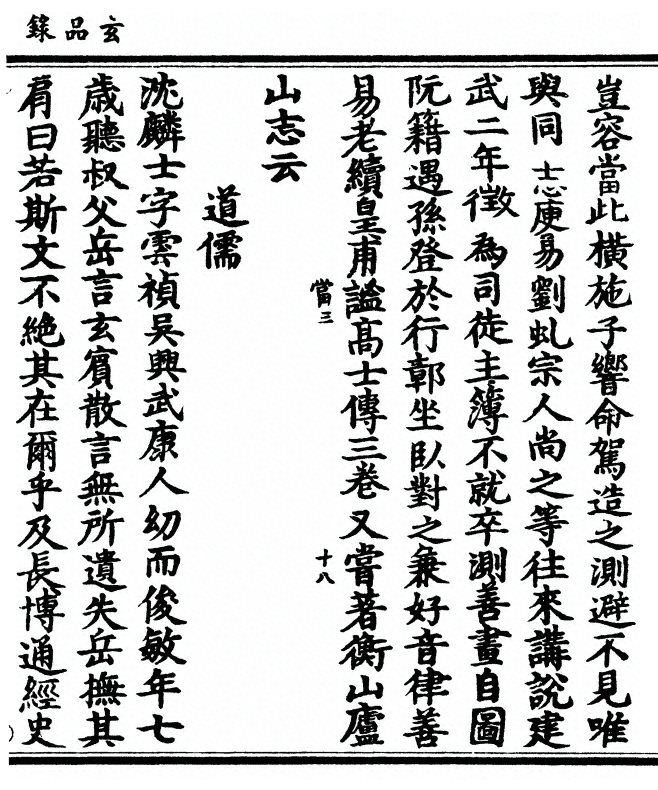 玄品錄
豈容當此橫施子響命駕造之測避不見唯
與同志庾易劉虬宗人尚之等往來講說建
武二年徵為司徒主簿不就卒測善畫自圖
阮籍遇孫登於行鄣坐臥對之兼好音律善
易老續皇甫謐高士傳三卷又嘗著衡山廬
當三
十八
山志云
道儒
沈麟士字雲禎吳興武康人幼而俊敏年七
歲聽叔父岳言玄賓散言無所遺失岳撫其
肩曰若斯文不絕其在爾乎及長博通經史